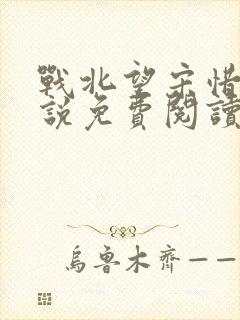 戰北望宋惜
說免費閱讀
烏魯木齊——